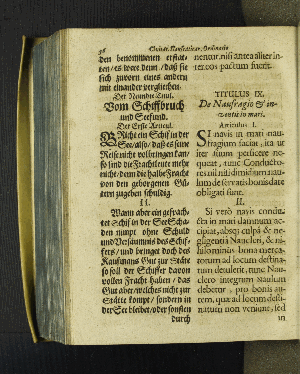 36 Civitat. Hanseaticar. Ordinatio
den benommenen erstat-
ten / es were denn / daß sie
sich zuvorn eines andern
mit einander verglichen.
Der Neundte Titul.
Vom Schiffbruch
und Seefund.
Der Erste Articul.
Bricht ein Schif in der
See / also / daß es seine
Reise nicht volbringen kan /
so sind die Frachtleute mehr
nicht / denn die halbe Fracht
von den geborgenen Gü-
tern zugeben schuldig.
II.
Wann aber ein gefrach-
tet Schif in der See Scha-
den nimpt ohne Schuld
und Versäumnis des Schif-
fers / und bringet doch des
Kaufmans Gut zur Stäte
so soll der Schiffer davon
vollen Fracht haben / das
Gut aber / welches nicht zur
Stätte kompt / sondern in
der See bleibet / oder sonsten
durch
nentur, nisi antea aliter in-
ter eos pactum fuerit.
TITULUS IX.
De Naufragio & in-
ventis in mari.
Articulus I.
Si navis in mari nau-
fragium faciat, ita ut
iter suum perficere ne-
queat, tunc Conducto-
res nil nisi dimidium nau-
lum de servatis bonis dare
obligati sunt.
II.
Si verò navis condu-
cta in mari damnum ac-
cipiat, absq; culpâ & ne-
gligentiâ Naucleri, & ni-
hilominus bona merca-
torum ad locum destina-
tum detulerit, tunc Nau-
clero integrum Naulum
debetur, pro bonis au-
tem, quæ ad locum desti-
natum non veniunt, sed
in